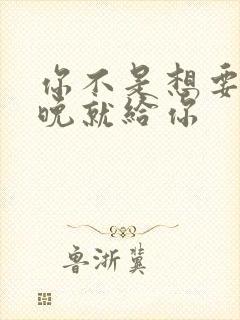 你不是想要
晚就給你
鲁浙冀